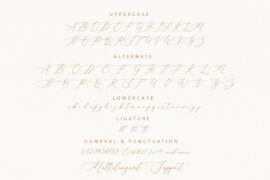 UPPERCASE
A B C D E F G H I J K L M
N O P Q R S T U V W X Y Z
ALTERNATE
A B C D E F G H I J K L M
N O P Q R S T U V W X Y Z
LOWERCASE
a b c d e f g h i j k l m n o p q r s t u v w x y z
LIGATURE
NUMERAL & PUNCTUATION
Multilingual Support